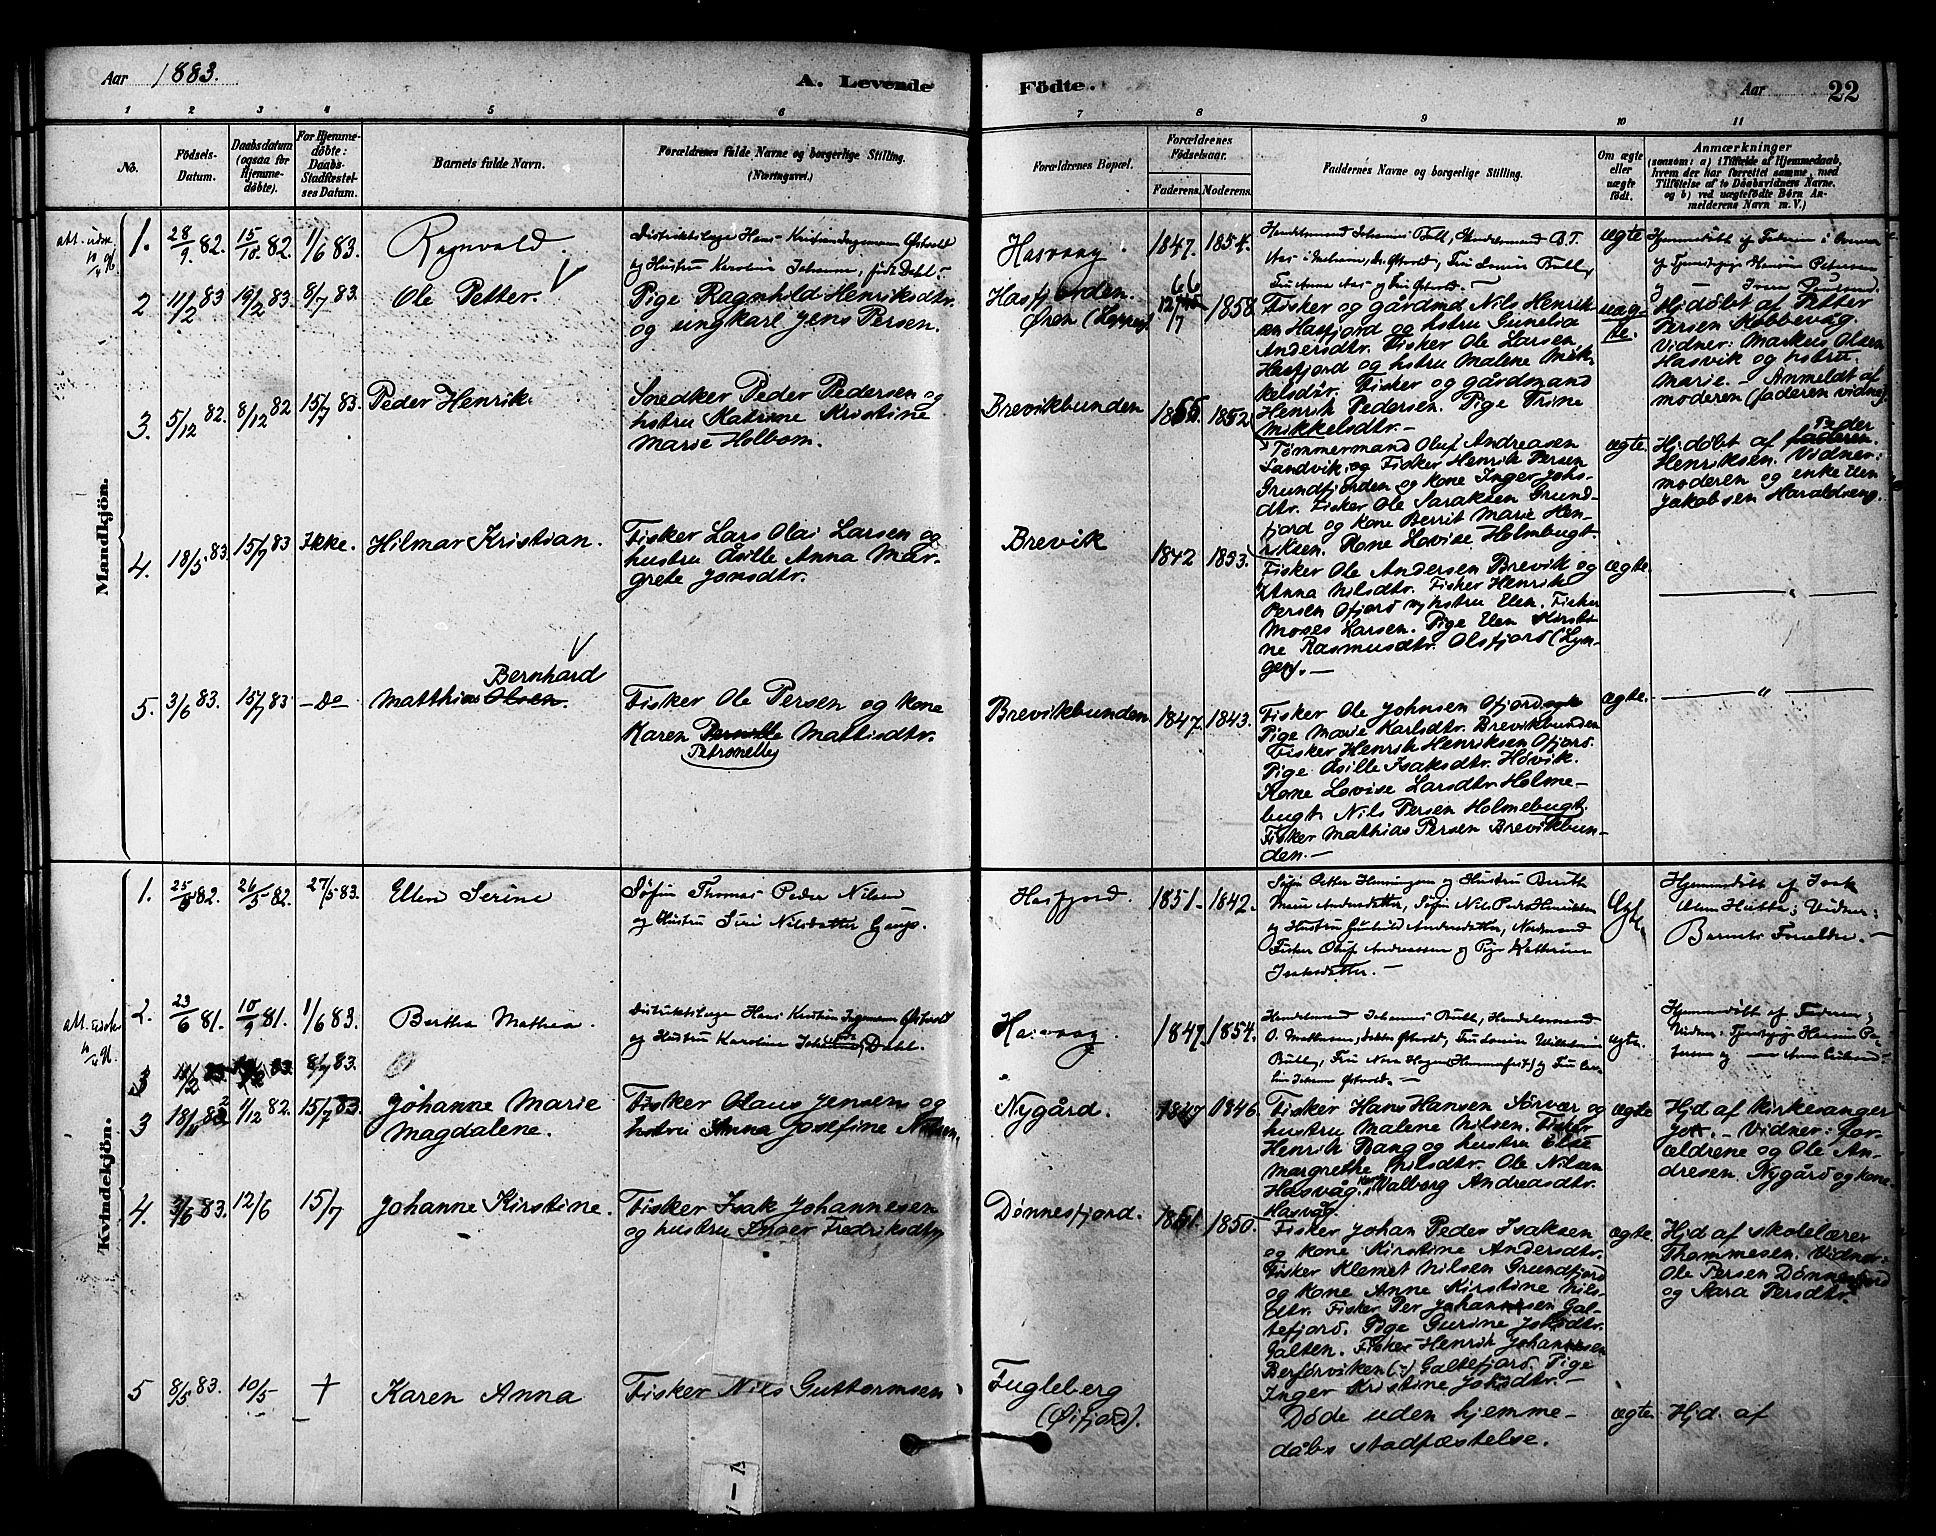 Aar 1883.
A. Levende Födte.
Aar 22
1 2 3 4 5 6 7 8 9 10 11
No.
Födsels-Datum.
Daabsdatum (ogsaa for Hjemmedöbte).
For Hjemmedöbte: Daabs-Stadfæstelses Datum.
Barnets fulde Navn.
Forældrenes fulde Navne og borgerlige Stilling. (Næringsvei.)
Forældrenes Bopæl.
Forældrenes Födselsaar.
Faderens. Moderens.
Faddernes Navne og borgerlige Stilling.
Om ægte eller uægte födt.
Anmærkninger
(saasom: a) i Tilfælde af Hjemmedaab, hvem der har forrettet samme, med Tilföielse af to Daabsvidners Navne. og b) ved uægtefödte Börn Anmelderens Navn m. V.)
Mandkjön.
1. 28/9 82. 15/10 82. 1/6 83. Ragnvald.
Distriktslæge Hans Kristian Ingemann Østvold
og Hustru Karoline Johanne, født Dahl.
Hasvaag. 1847. 1854.
Handelsmand Johannes Bull, Handelsmand B.T.
ægte
Hjemmedöbt af Faderen
2 11/2 83 19/2 83. 8/7 83. Ole Petter.
Pige Ragnhild Henriksdtr.
og ungkarl Jens Persen.
Hasfjorden.
Øren
66
12/7 1858.
Fisker og gårdmd Nils Henrik-
sen Hasfjord og hstru Gunelia
Andersdtr. Fisker Ole Larsen
Hasfjord og hstru Malene Mik-
kelsdtr. Fisker og gårdsmand
Henrik Pedersen. Pige Trine
Mikkelsdtr.—
uæg-
te.
Hjdöbt af Petter
Persen Kobbevåg
Vidner: Markus Olsen
Hasvik og hstru
Marie. – Anmeldt af
moderen (faderen vidne).
3. 5/12 82. 8/12 82 15/7 83. Peder Henrik.
Snedker Peder Pedersen og
hstru Katrine Kristine
Marie Holbom.
Brevikbunden 1855. 1852
Tømmermand Oluf Andreasen
Sandvik, og Fisker Henrik Persen
Grundfjorden og kone Inger Johs-
dtr. Fisker Ole Saraksen Grund-
fjord og kone Berrit Marie Hen-
riksen. Kone Lovise Holmbugt.
ægte.
Hjdöbt af faderen. Peder
Henriksen. Vidner:
moderen og enke Elen
Jakobsen Haraldseng.
4. 18/5 83 15/7 83 Ikke. Hilmar Kristian.
Fisker Lars Olai Larsen og
hustru Åsille Anna Mar-
grete Jonsdtr.
Brevik 1842 1853.
Fisker Ole Andersen Brevik og
Anna Nilsdtr. Fisker Henrik
Persen Ofjord og hstru Elen. Fisker
Moses Larsen. Pige Elen Kirsti-
ne Rasmusdtr. Olsfjord (Lyn-
gen).—
ægte.
— " —
5. 3/6 83. 15/7 83 – Do Matthias Olsen. Bernhard
Fisker Ole Persen og kone
Karen Pernille Mattisdtr.
Petronelle
Brevikbunden 1847. 1843.
Fisker Ole Johnsen Ofjord
Pige Marie Karlsdtr. Brevikbunden
Fisker Henrik Henriksen Ofjord.
Pige Åsille Isaksdtr. Høvik.
Kone Lovise Larsdtr. Holme-
bugt. Nils Persen Holmebugt.
Fisker Mathias Persen Brevikbun-
den.—
ægte.
— " —
Kvindekjön.
1. 25/5 82. 26/5 82. 27/5 83. Ellen Serine
Søfin Thomas Peder Nilsen
og Hustru Siri Nilsdatter Gaup.
Hasfjord. 1851. 1842.
Søfin Petter Henningsen og Hustru Berith
Marie Andersdatter, Søfin Nils Peder Henriksen
og Hustru Gunhild Andersdatter, Nordmand
Fisker Oluf Andreassen og Pige Kathrine
Isaksdatter.—
Ægte.
Hjemmedöbt af Isak
Olsen Hutta; Vidner:
Barnets Forældre.—
2. 23/6 81. 10/9 81. 1/6 83. Bertha Mathea.
Distriktslæge Hans Kristian Ingemann Østvold
og Hustru Karoline Dahl.
Hasvaag. 1847. 1854.
Handelsmand Johannes Bull, Handelsmand
ægte.
Hjemmedöbt af Faderen;
3 8/7 83.
3 18/11 82 1/12 82. 15/7 83. Johanne Marie
Magdalene.
Fisker Olaus Jensen og
hstru Anna Josefine Nilsen.
Nygård. 1847 1846.
Fisker Hans Hansen Sørvær og
hustru Malene Nilsen. Fisker
Henrik Bang og hustru Else
Margrethe Nilsdtr. Ole Nilsen
Hasvåg. Valborg Andreasdtr.
Hasvåg.
ægte.
Hjd af kirkesanger
Jott. – Vidner: for-
ældrene og Ole An-
dresen Nygård og kone.
4. 3/6 83. 12/6 15/7 Johanne Kirstine.
Fisker Isak Johannesen
og hustru Inger Fredriksdtr
Dønnesfjord. 1851. 1850.
Fisker Johan Peder Isaksen
og kone Kirstine Andersdtr.
Fisker Klemet Nilsen Grundfjord
og kone Anne Kirstine Nils-
dtr. Fisker Per Johannesen Gal-
tefjord. Pige Gurine Johsdtr.
Galten. Fisker Henrik Johannesen
Berførviken (?) Galtefjord. Pige
Inger Kristine Johsdtr.—
ægte.
Hjd af skolelærer
Thommesen. Vidner:
Ole Persen Dønnesfjord
og Sara Persdtr.
5 8/5 83. 10/5 † Karen Anna
Fisker Nils Guttormsen
Fugleberg
(Øifjord).
Døde uden hjemme-
dåbs stadfæstelse.
ægte
Hjd. af